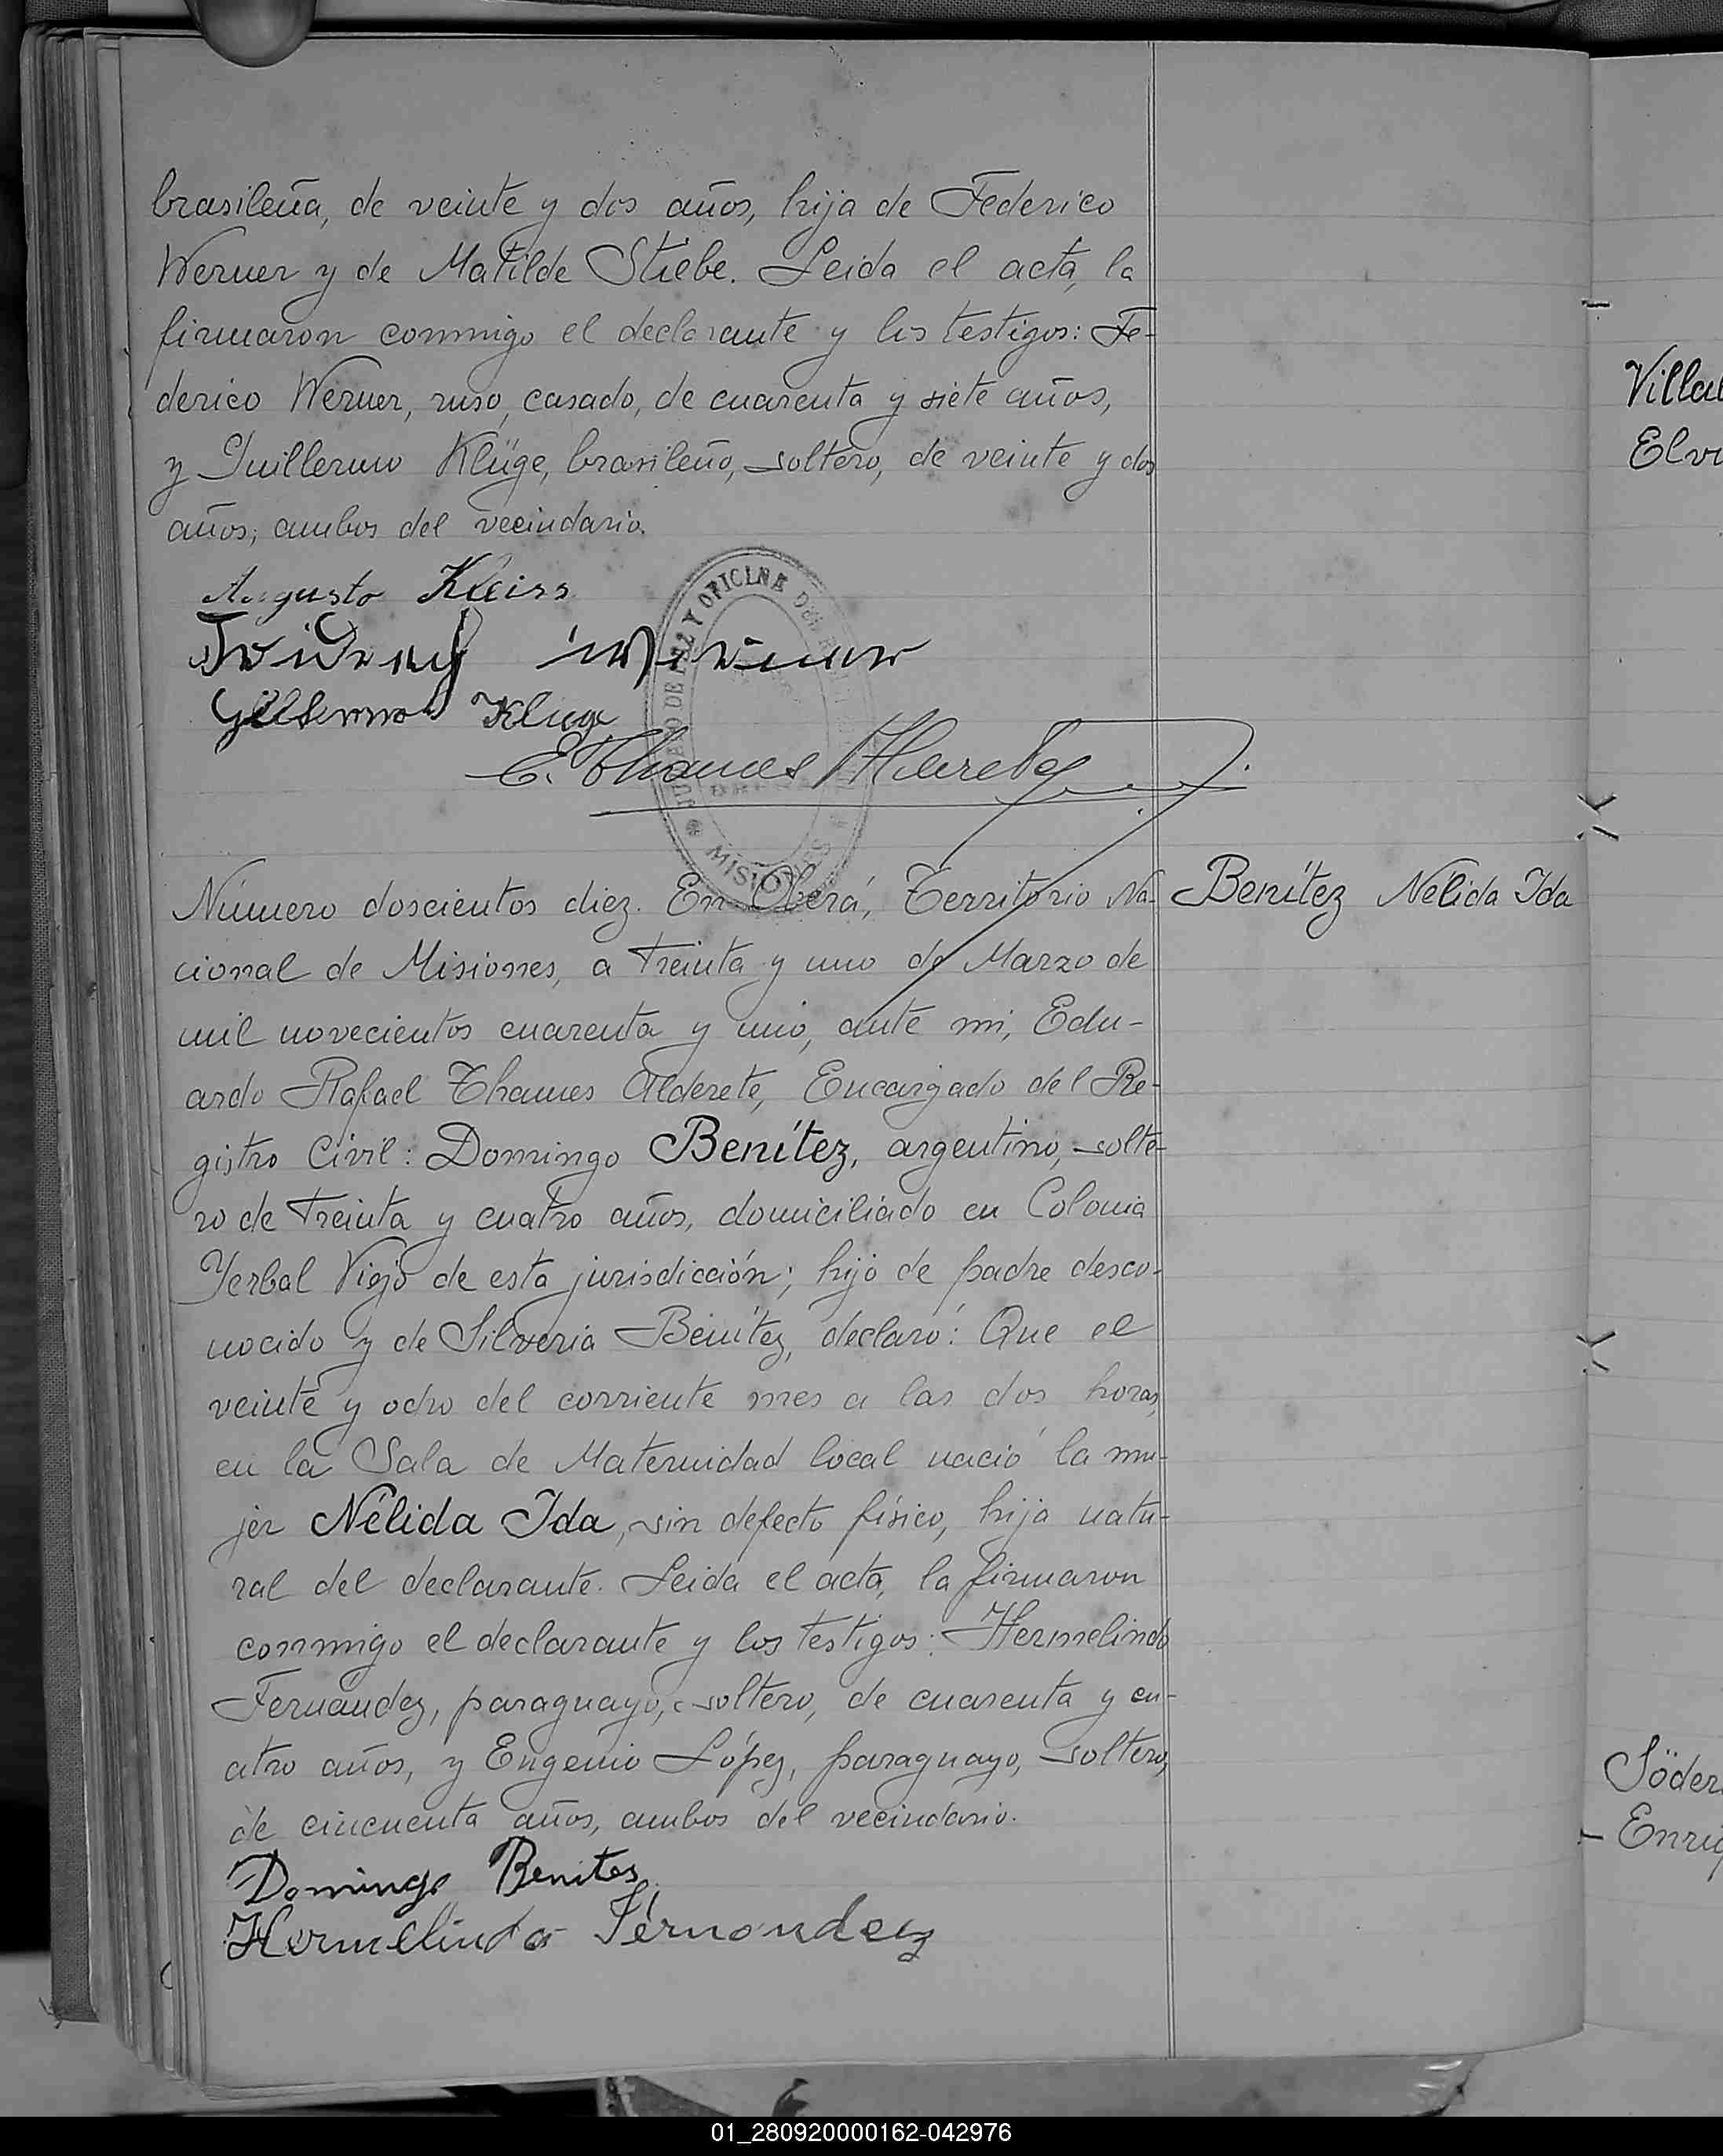 brasileña, de veinte y dos años, hija de Federico
Werner y de Matilde Stiebe. Leida el acta, la
firmaron conmigo el declarante y los testigos: Fe-
derico Werner, ruso, casado, de cuarenta y siete años,
y Guillermo Klüge, brasileño, soltero, de veinte y dos
años; ambos del vecindario.
Augusto Kleiss
Gilermo Kluge
E. Thames Alderete
MISIONES
Número doscientos diez. En Oberá, Territorio Na-
cional de Misiones, a treinta y uno de Marzo de
mil novecientos cuarenta y uno, ante mi, Edu-
ardo Rafael Thames Alderete, Encargado del Re-
gistro Civil: Domingo Benítez, argentino, solte-
ro de treinta y cuatro años, domiciliado en Colonia
Yerbal Viejo de esta jurisdicción; hijo de padre desco-
nocido y de Silveria Benítez, declaró: Que el
veinte y ocho del corriente mes a las dos horas,
en la Sala de Maternidad local nació la mu-
jer Nélida Ida, sin defecto físico, hija natu-
ral del declarante. Leida el acta, la firmaron
conmigo el declarante y los testigos: Hermelindo
Fernández, paraguayo, soltero, de cuarenta y cu-
atro años, y Eugenio López, paraguayo, soltero,
de cincuenta años, ambos del vecindario.
Domingo Benites
Hermelindo Fernondez
Benítez Nélida Ida
Villal
Elvi
Söder
Enriq
01_280920000162-042976